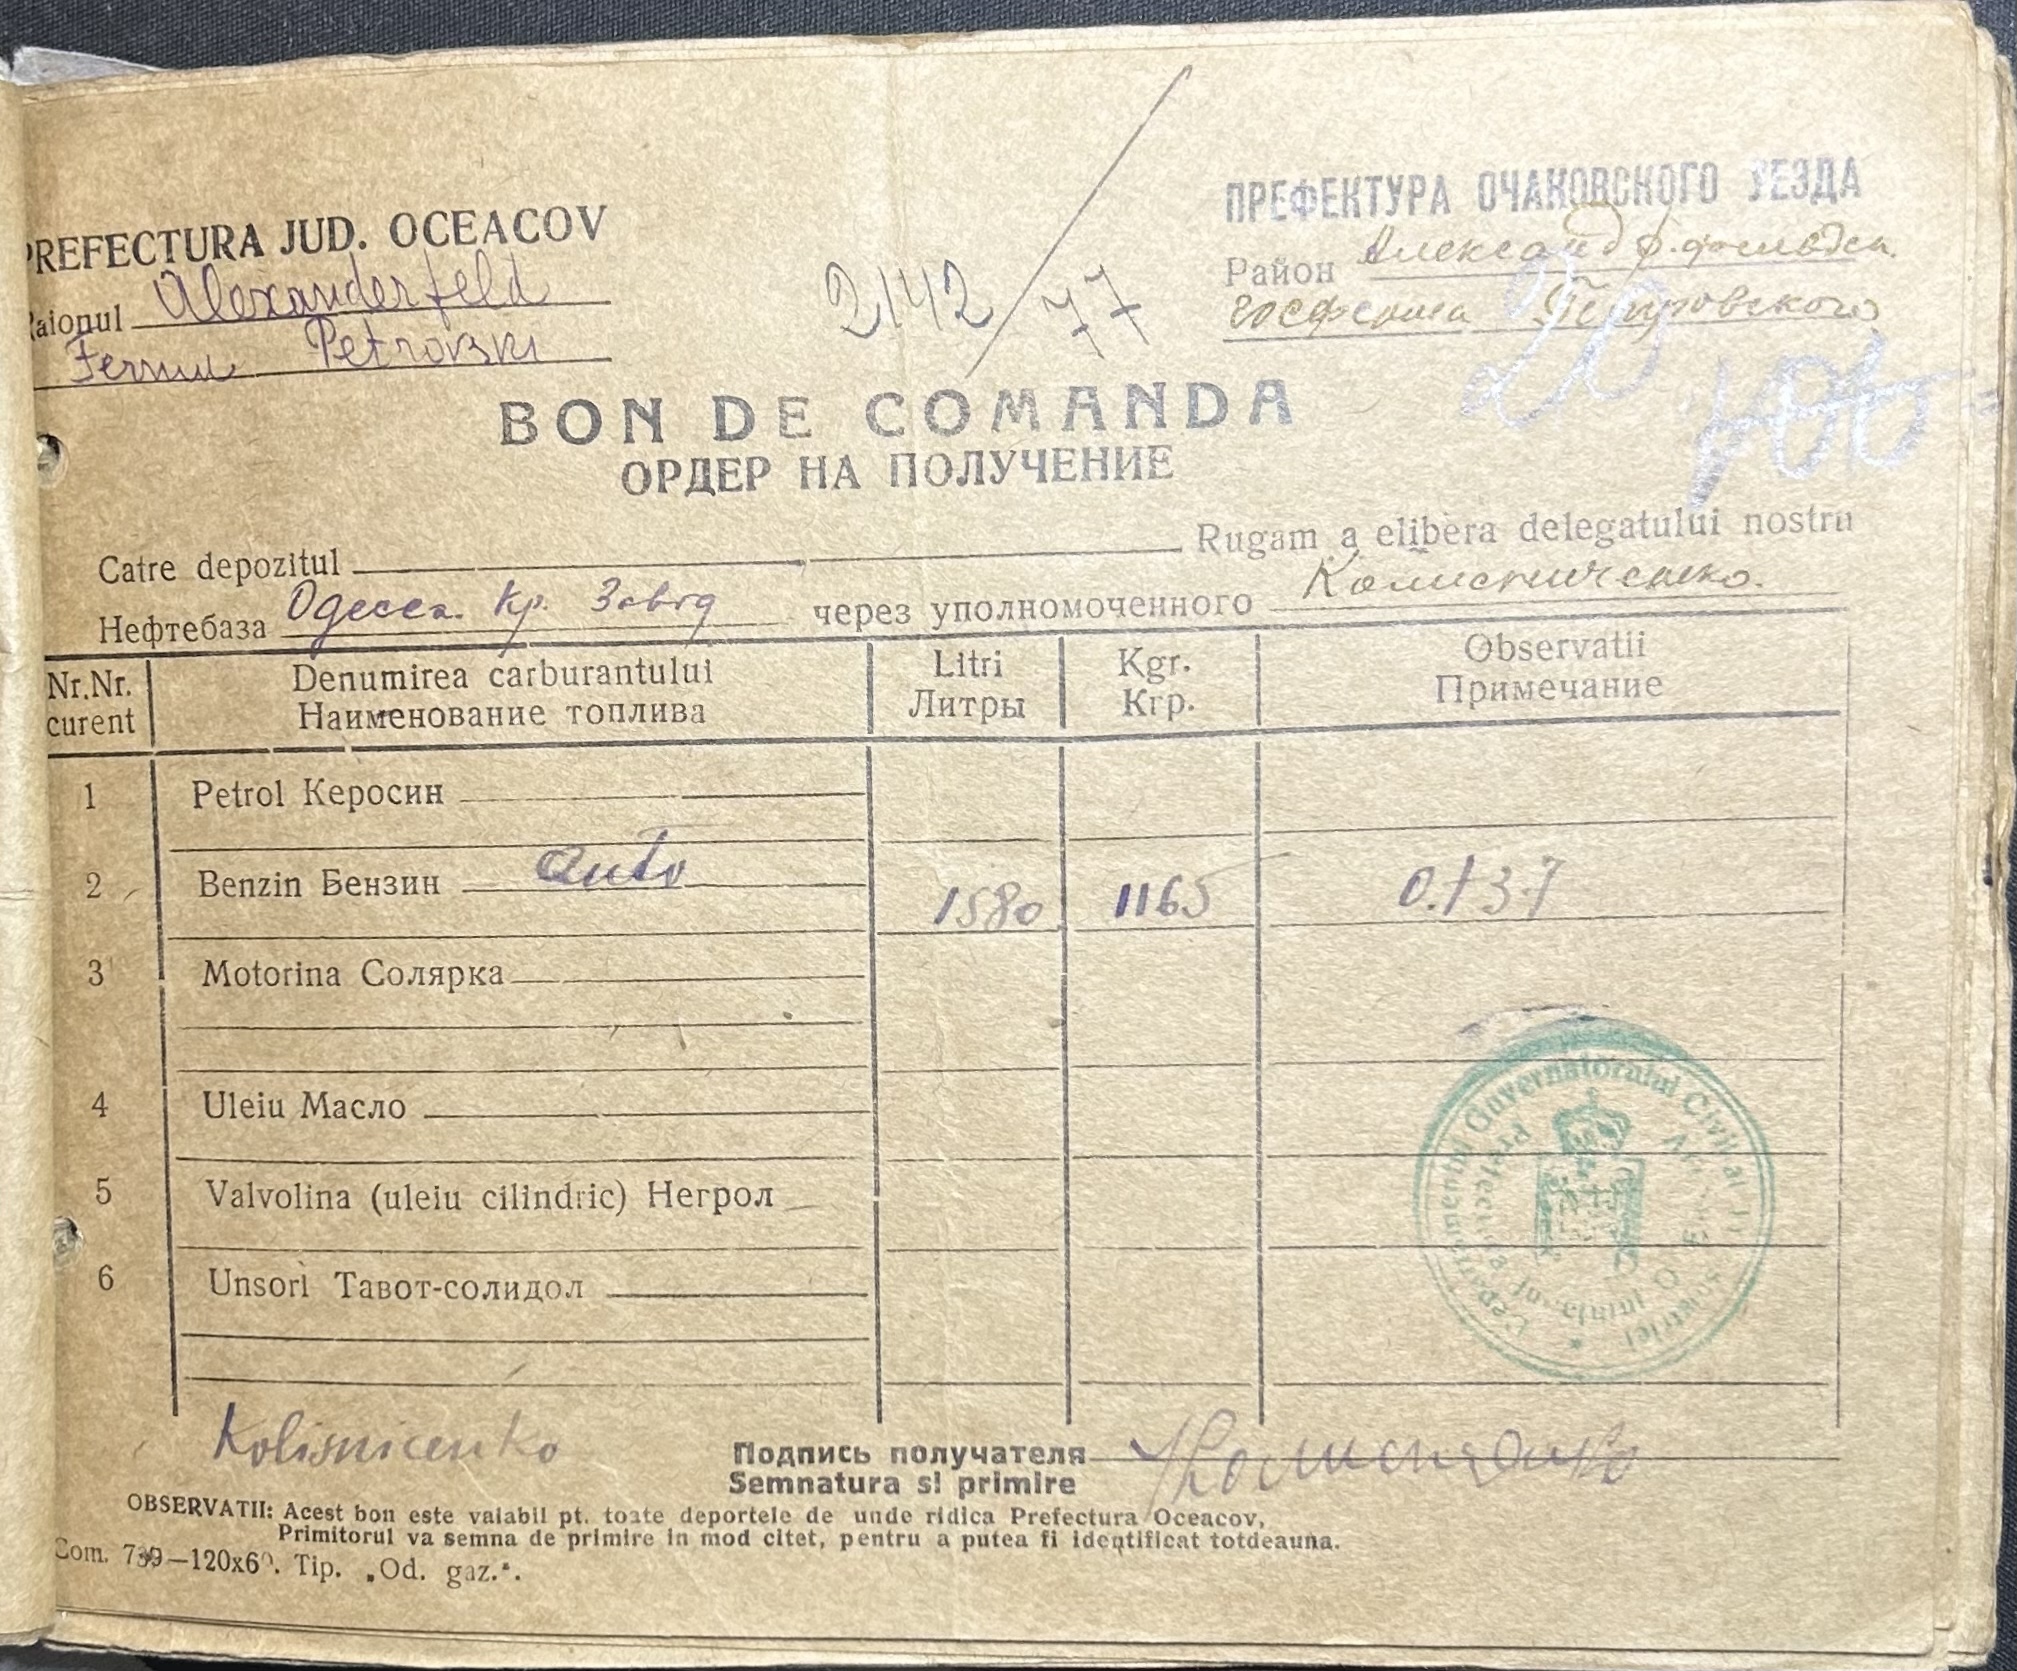 PREFECTURA JUD. OCEACOV
Raionul Alexanderfeld
Petrovski
2142/77
ПРЕФЕКТУРА ОЧАКОВСКОГО УЕЗДА
Район Александрфельдск.
госферма Петровского
BON DE COMANDA
ОРДЕР НА ПОЛУЧЕНИЕ
Catre depozitul Rugam a elibera delegatului nostru
Нефтебаза Одесса. Кр. через уполномоченного Колисниченко.
Nr.Nr. curent Denumirea carburantului Litri Kgr. Observatii
Наименование топлива Литры Кгр. Примечание
1 Petrol Керосин
2 Benzin Бензин auto 1580 1165 0.737
3 Motorina Солярка
4 Uleiu Масло
5 Valvolina (uleiu cilindric) Негрол
6 Unsori Тавот-солидол
Guvernatorului Civil al
Prefectura
Kolisnicenko
Подпись получателя
Semnatura si primire
OBSERVATII: Acest bon este valabil pt. toate deportele de unde ridica Prefectura Oceacov,
Primitorul va semna de primire in mod citet, pentru a putea fi identificat totdeauna.
Com. 739—120x60. Tip. „Od. gaz.“.